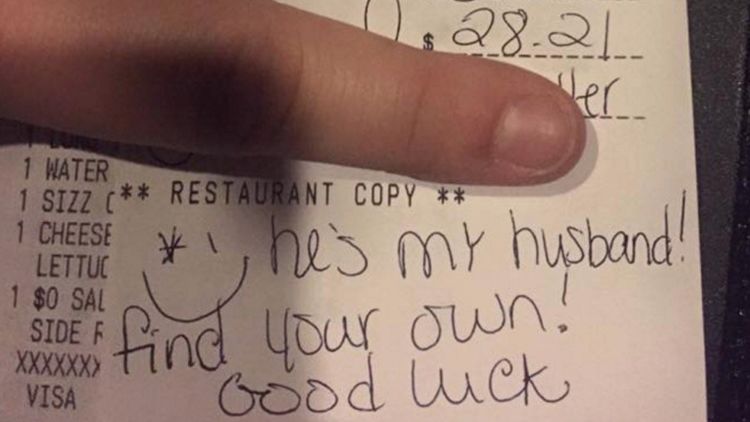 $ 28.21
1 WATER
1 SIZZ C
1 CHEESE
LETTUC
1 $0 SAL
SIDE F
XXXXXXX
VISA
** RESTAURANT COPY **
he's my husband!
find your own!
Good luck